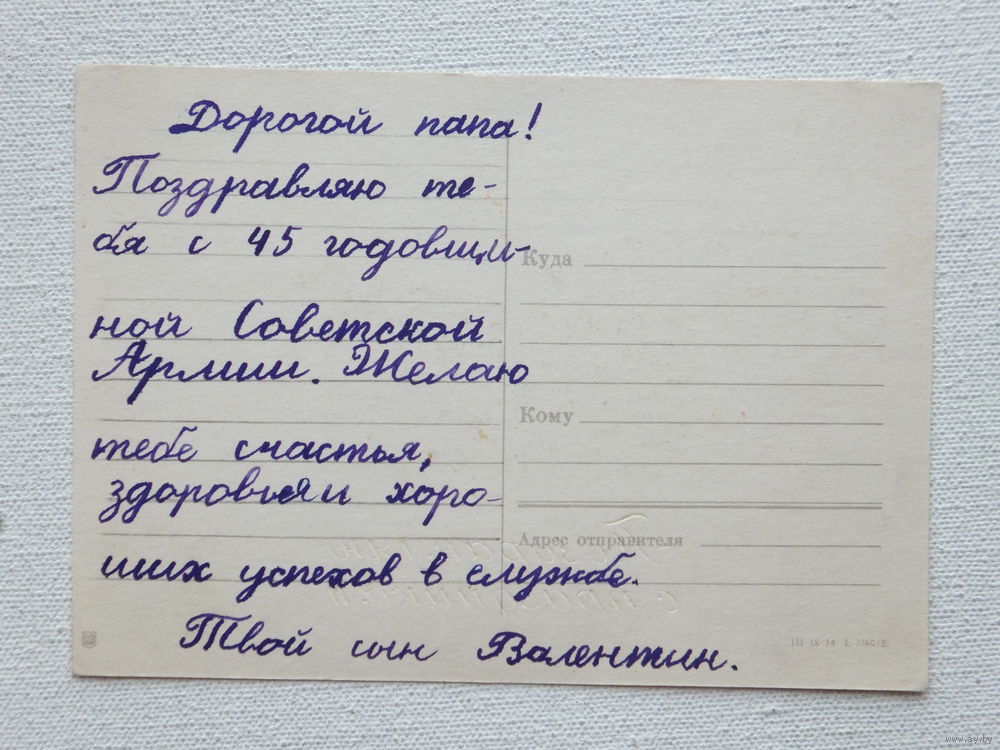 Дорогой папа!
Поздравляю те-
бя с 45 годовщи-
ной Советской
Армии. Желаю
тебе счастья,
здоровья и хоро-
ших успехов в службе.
Твой сын Валентин.
Куда
Кому
Адрес отправителя
III-18-34 L 7/60/B
www.ay.by